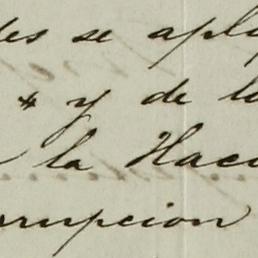 des se apli
* y de la
la Haci
rrupcion